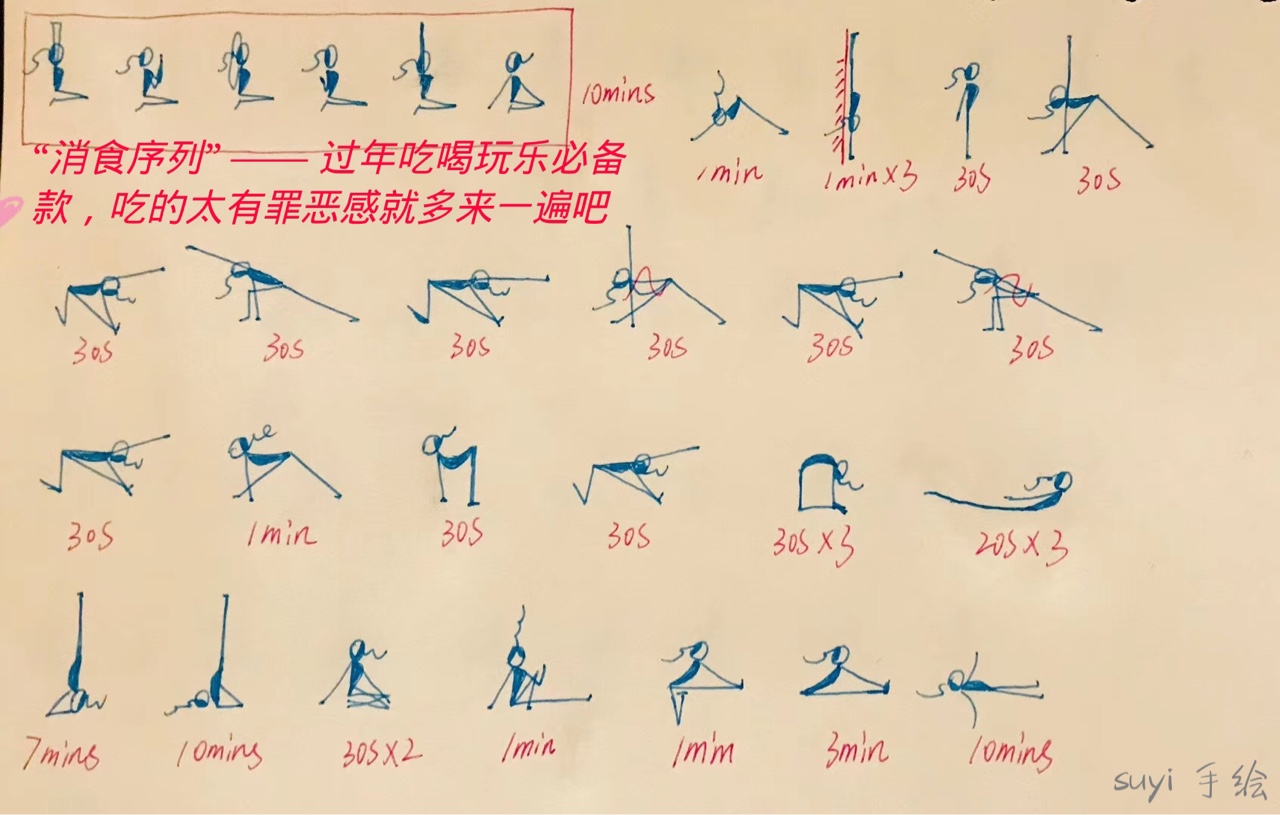 10mins
“消食序列” —— 过年吃喝玩乐必备
款，吃的太有罪恶感就多来一遍吧
1min 1min×3 30S 30S
30S 30S 30S 30S 30S 30S
30S 1min 30S 30S 30S×3 20S×3
7mins 10mins 30S×2 1min 1min 3min 10mins
suyi 手绘